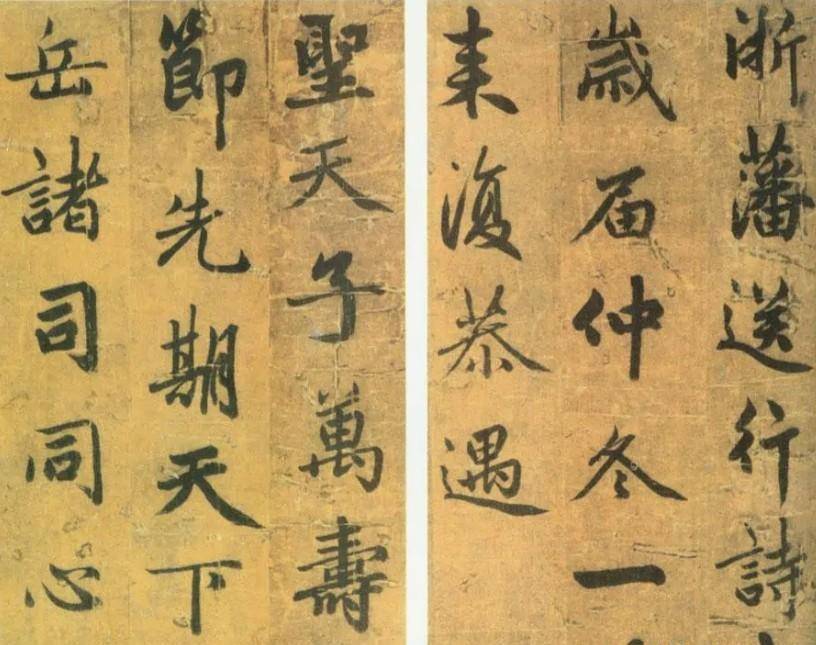 浙藩送行詩
歲届仲冬一
来復恭遇
聖天子萬壽
節先期天下
岳諸司同心